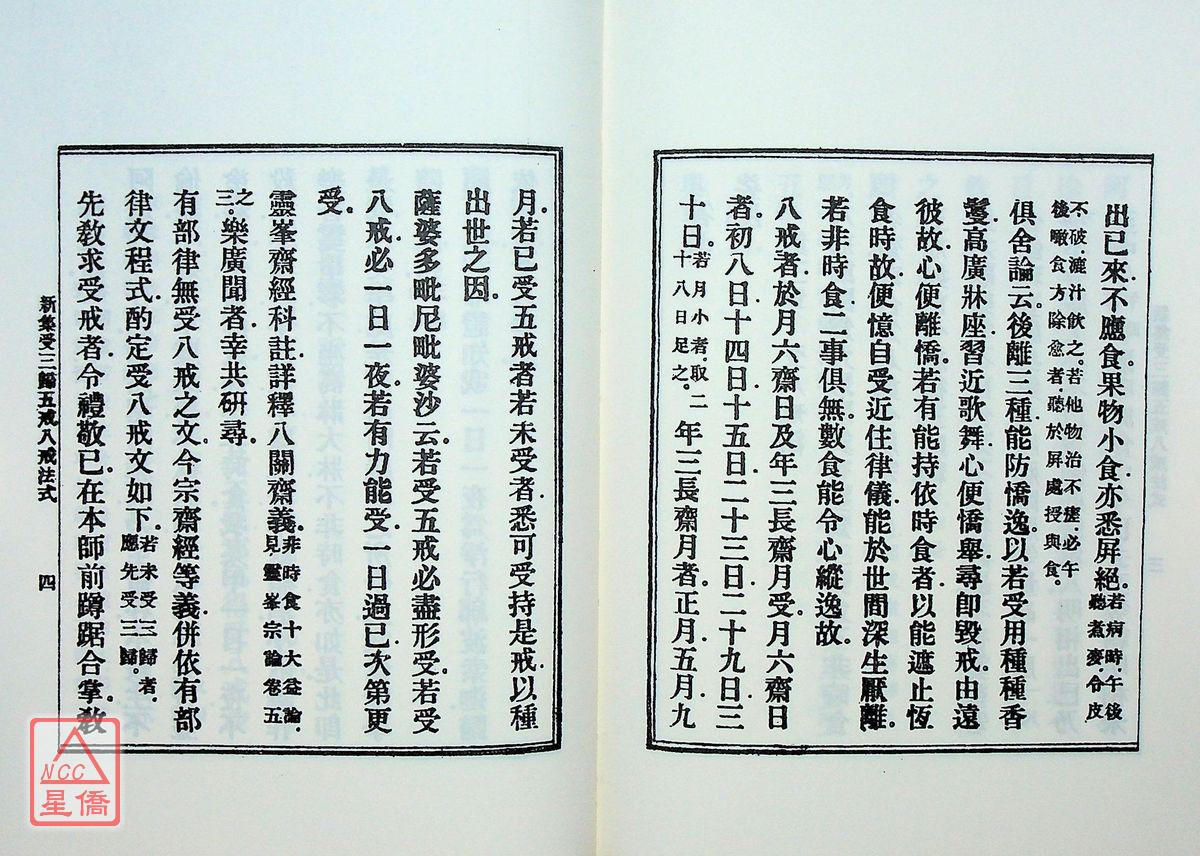 出已來.不應食果物小食.亦悉屏絕。若病時.午後聽煮麥.令皮
不破漉汁飲之。若他物治不瘥.必午後噉食方除愈者.聽於屏處授與食。
俱舍論云。後離三種.能防憍逸。以若受用種種香
鬘.高廣牀座.習近歌舞.心便憍舉.尋卽毀戒。由遠
彼故.心便離憍。若有能持依時食者.以能遮止恆
食時故.便憶自受近住律儀.能於世間深生厭離。
若非時食.二事俱無.數食能令心縱逸故。
八戒者.於月六齋日.及年三長齋月受。月六齋日
者。初八日.十四日.十五日.二十三日.二十九日.三
十日。若月小者.取二十八日足之。年三長齋月者。正月.五月.九
月.若已受五戒者.若未受者.悉可受持是戒.以種
出世之因。
薩婆多毗尼毗婆沙云。若受五戒.必盡形受。若受
八戒.必一日一夜。若有力能受.一日過已.次第更
受。
靈峯齋經科註.詳釋八關齋義。非時食十大益論.見靈峯宗論卷五
之三。樂廣聞者.幸共硏尋。
有部律無受八戒之文。今宗齋經等義.併依有部
律文程式.酌定受八戒文如下。若未受三歸者.應先受三歸。
先敎求受戒者.令禮敬已.在本師前蹲踞合掌。敎
新集受三歸五戒八戒法式
四
NCC
星僑